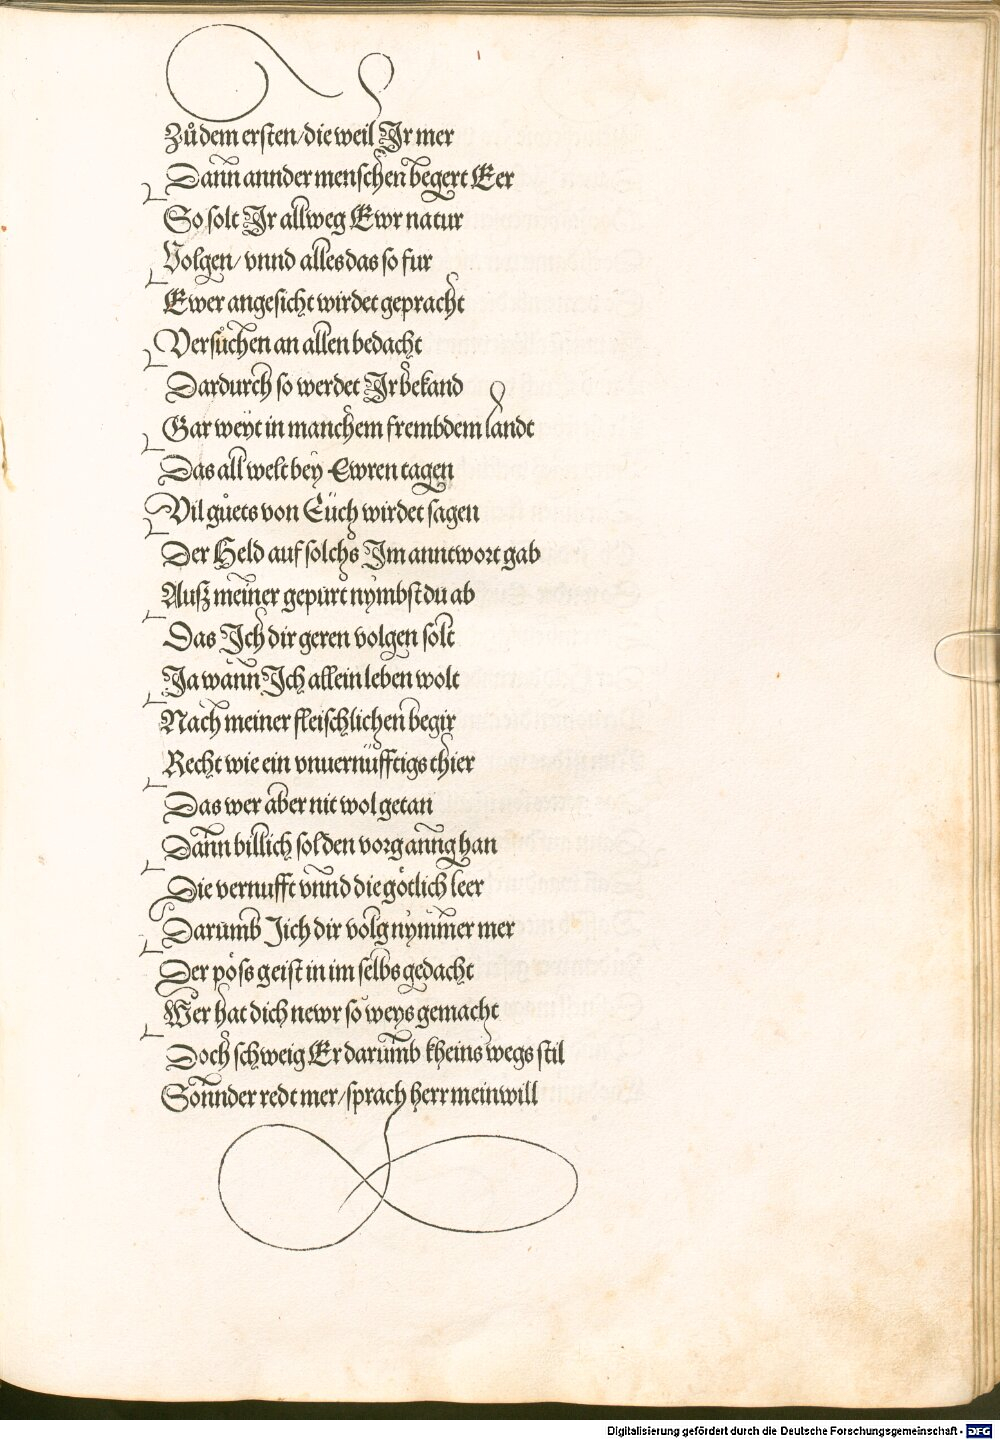 Zůdem ersten/die weil Ir mer
Dann annder menschen begert Eer
So solt Ir allweg Ewr natur
Volgen/ vnnd alles das so fur
Ewer angesicht wirdet gepracht
Versůchen an allen bedacht
Dardurch so werdet Ir bekand
Gar weyt in manchem frembdem landt
Das all welt bey Ewren tagen
Vil gůets von Eüch wirdet sagen
Der Held auf solchs Im anntwort gab
Ausz meiner gepurt nymbst du ab
Das Ich dir geren volgen solt
Ja wann Ich allein leben wolt
Nach meiner fleischlichen begir
Recht wie ein vnuernüfftigs thier
Das wer aber nit wol getan
Dann billich solden vorganng han
Die vernufft vnnd die götlich leer
Darumb Iich dir volg nymmer mer
Der pöss geist in im selbs gedacht
Wer hat dich newr so weys gemacht
Doch schweig Er darumb kheins wegs stil
Sonnder redt mer/sprach herr mein will
Digitalisierung gefördert durch die Deutsche Forschungsgemeinschaft - DFG